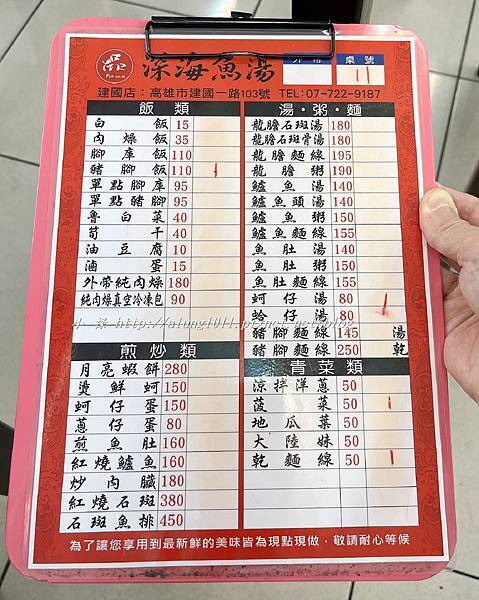 深海魚湯
外帶 桌號
11
建國店：高雄市建國一路103號 TEL:07-722-9187
飯類
白飯 15
肉燥飯 35
腳庫飯 110
豬腳飯 110
單點腳庫 95
單點豬腳 95
魯白菜 40
筍干 40
油豆腐 10
滷蛋 15
外帶純肉燥 180
純肉燥真空冷凍包 90
煎炒類
月亮蝦餅 280
燙鮮蚵 150
蚵仔蛋 150
蔥仔蛋 80
煎魚肚 160
紅燒鱸魚 160
炒內臟 180
紅燒石斑 380
石斑魚排 450
湯·粥·麵
龍膽石斑湯 180
龍膽石斑骨湯 180
龍膽麵線 195
龍膽粥 190
鱸魚湯 140
鱸魚頭湯 140
鱸魚粥 150
鱸魚麵線 155
魚肚湯 140
魚肚粥 150
魚肚麵線 155
蚵仔湯 80
蛤仔湯 80
豬腳麵線 145 湯
豬腳麵線 250 乾
青菜類
涼拌洋蔥 50
菠菜 50
地瓜葉 50
大陸妹 50
乾麵線 50
為了讓您享用到最新鮮的美味皆為現點現做，敬請耐心等候